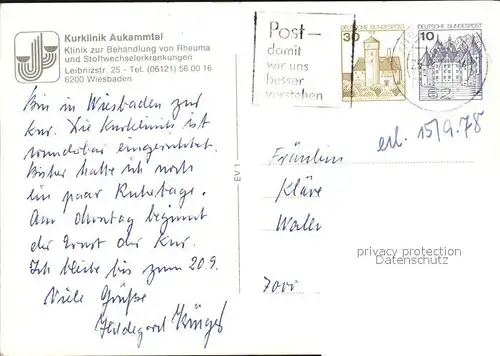 Kurklinik Aukammtal
Klinik zur Behandlung von Rheuma
und Stoffwechselerkrankungen
Leibnizstr. 25 - Tel. (06121) 56 00 16
6200 Wiesbaden
Bin in Wiesbaden zur
Kur. Die Kurklinik ist
wunderbar eingerichtet.
Bisher hatte ich noch
ein paar Ruhetage.
Am Montag beginnt
der Ernst der Kur.
Ich bleibe bis zum 20.9.
Viele Grüße
Hildegard
EV 1
Post-
damit
wir uns
besser
verstehen
30
DEUTSCHE BUNDESPOST
10
DEUTSCHE BUNDESPOST
62
erl. 15/9.78
Fräulein
Kläre
7000
privacy protection
Datenschutz